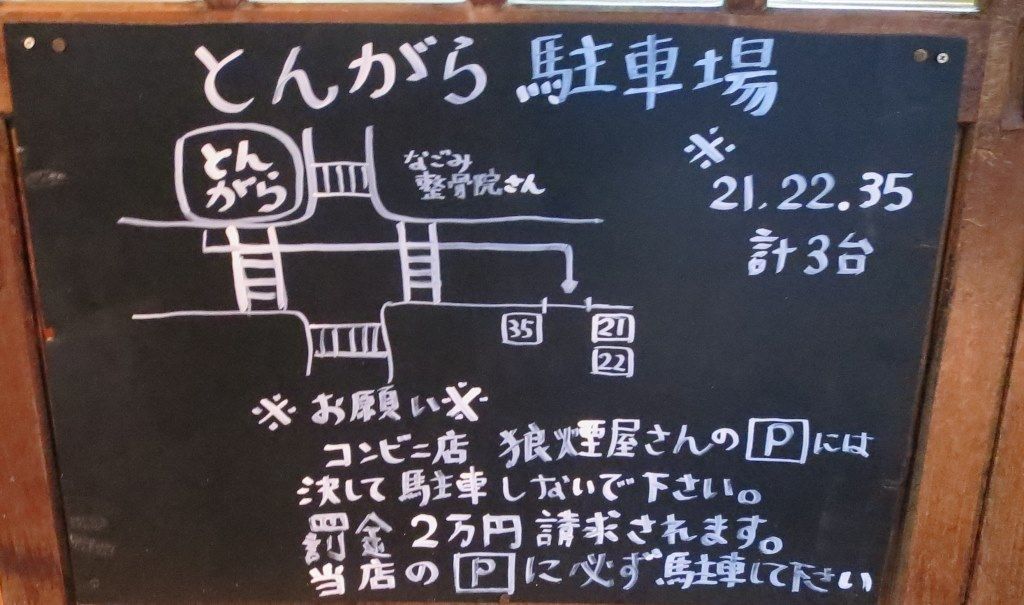 とんがら 駐車場
とん
がら
なごみ
整骨院さん
※
21.22.35
計3台
35
21
22
※お願い※
コンビニ店 狼煙屋さんのPには
決して駐車しないで下さい。
罰金2万円請求されます。
当店のPに必ず駐車して下さい